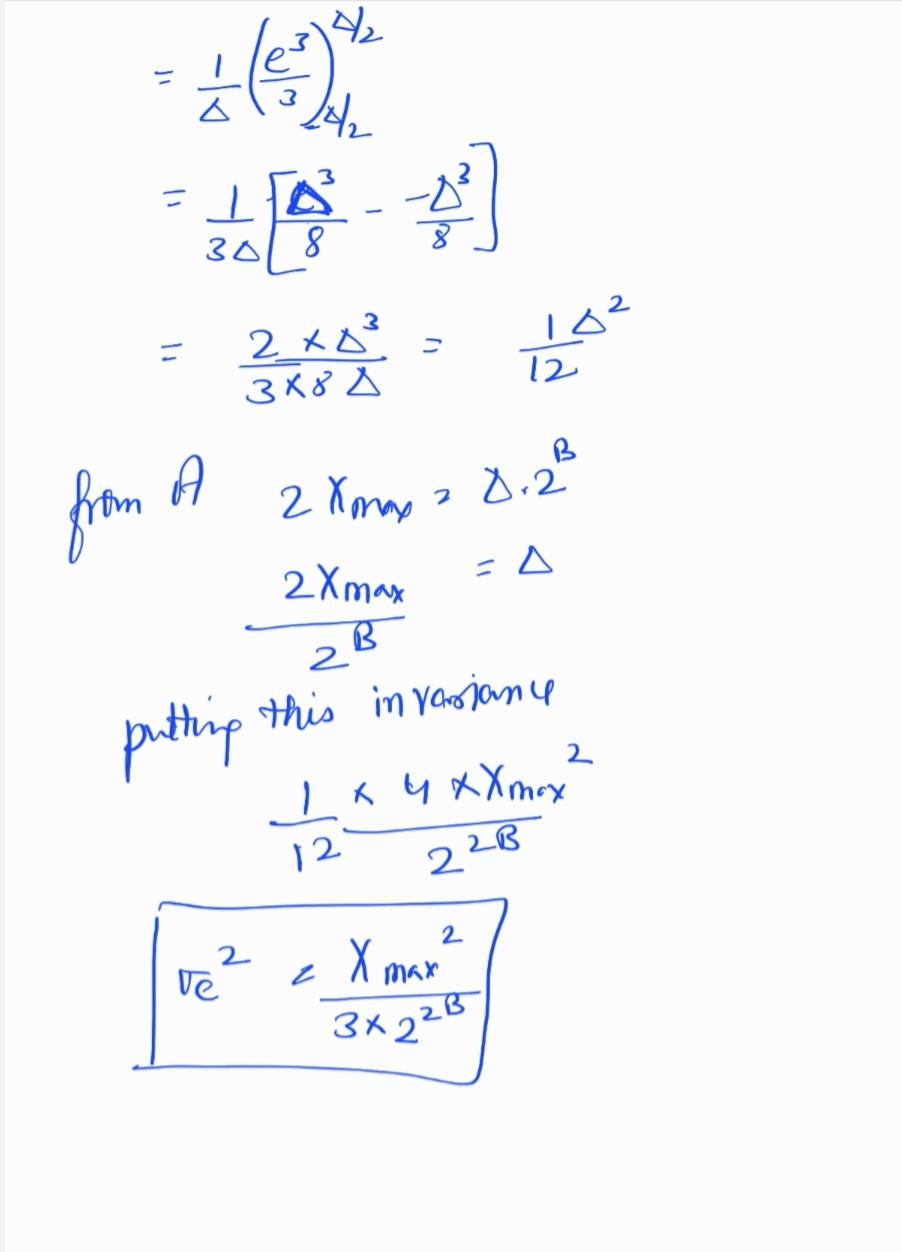 = 1/Δ (e³/3) Δ/2 -Δ/2
= 1/3Δ [Δ³/8 - -Δ³/8]
= 2×Δ³/3×8Δ = 1Δ²/12
from A 2Xmax = Δ.2^B
2Xmax/2^B = Δ
putting this in variance
1/12 × 4×Xmax²/2^2B
σe² = Xmax²/3×2^2B